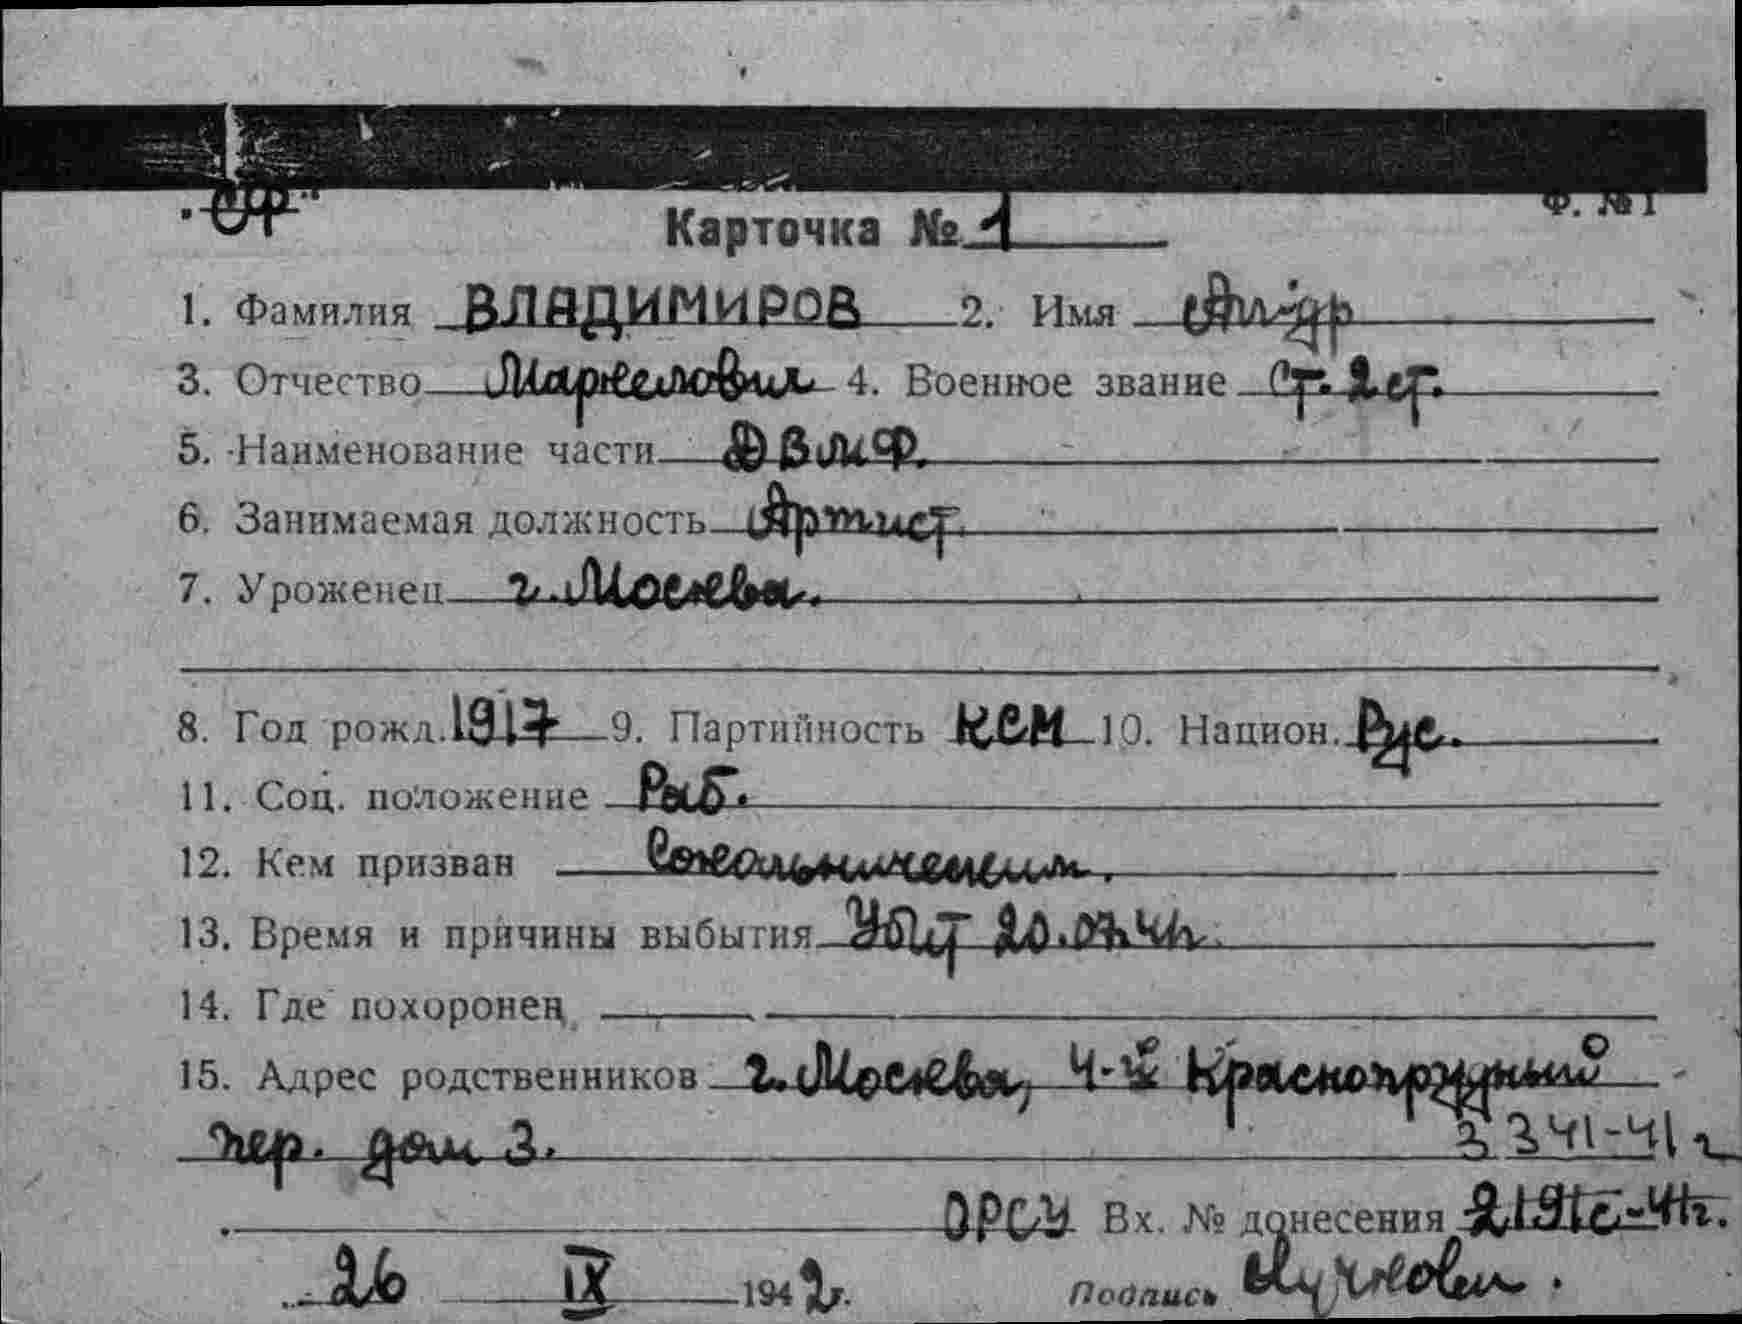 "ОФ" Ф. № 1
Карточка № 1
1. Фамилия ВЛАДИМИРОВ 2. Имя Ал-др
3. Отчество Маркелович 4. Военное звание Ст. 2 ст.
5. Наименование части ДВМФ.
6. Занимаемая должность Артист.
7. Уроженец г. Москва.
8. Год рожд. 1917 9. Партийность КСМ 10. Национ. Рус.
11. Соц. положение Раб.
12. Кем призван Сокольническим.
13. Время и причины выбытия Убит 20.07.41г.
14. Где похоронен
15. Адрес родственников г. Москва, 4-й Краснопрудный
пер. дом 3. 3341-41г
ОРСУ Вх. № донесения 2191с-41г.
26 IX 1942г. Подпись